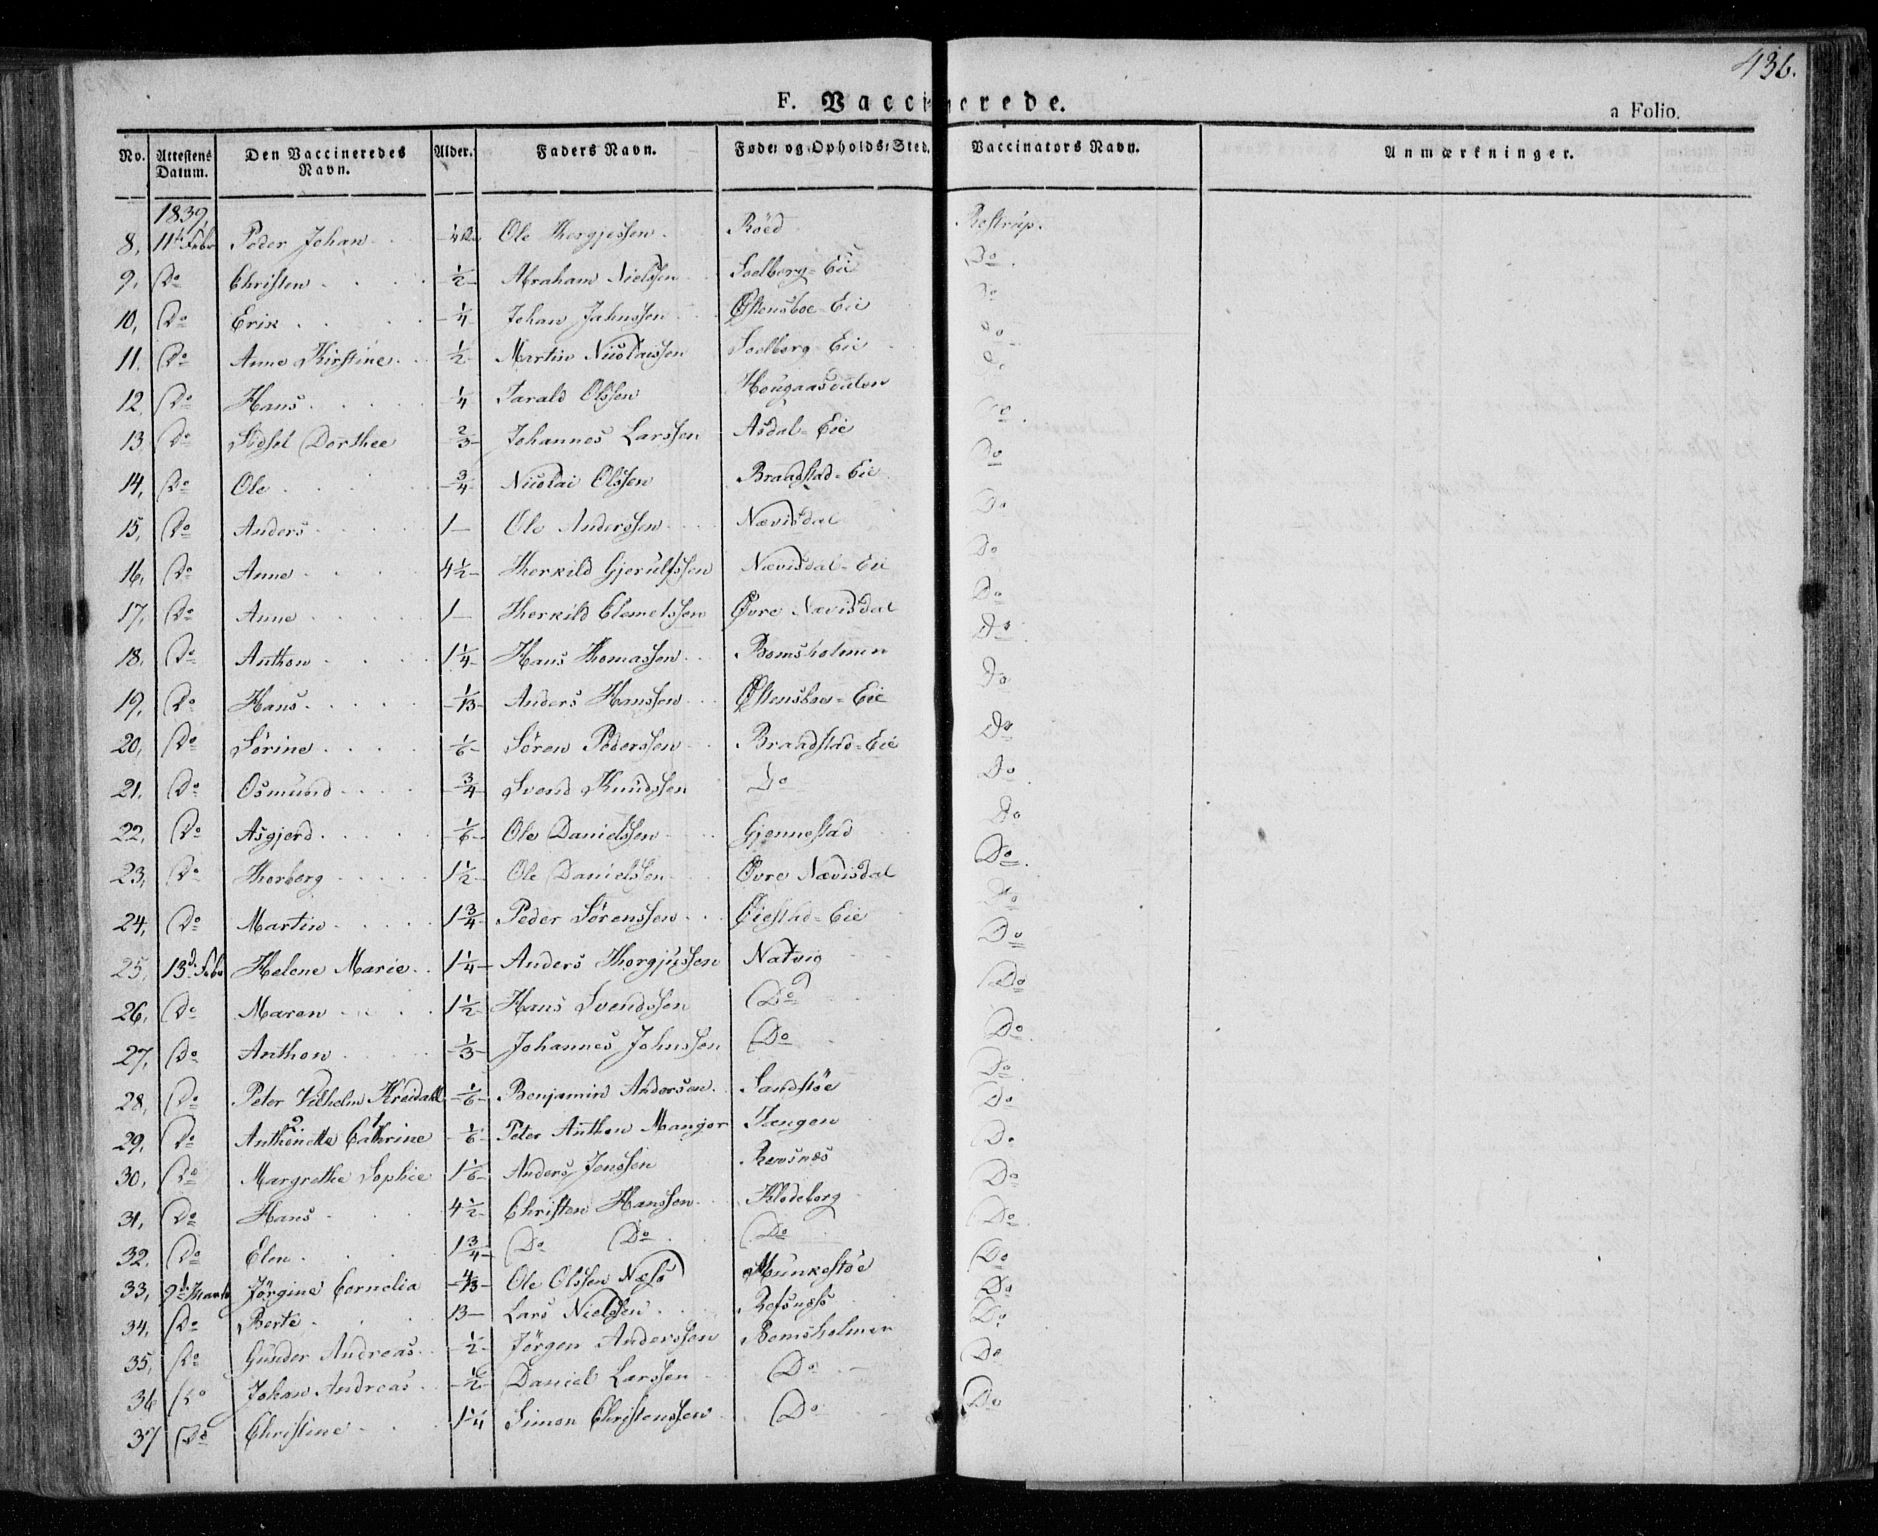 436.
F. Vaccinerede.
a Folio.
No. Attestens Datum. Den Vaccineredes Navn. Alder. Faders Navn. Føde- og Opholds-Sted. Vaccinators Navn. Anmærkninger.
1839
8, 11t Febr Peder Johan Ole Thergjessen Röed Rostrup.
9, Do Christen 1/2 Abraham Nielssen Soelberg-Eie Do
10, Do Erik 1/4 Johan Jahnssen Østensboe-Eie Do
11, Do Anne Kirstine 1/2 Martin Nicolaissen Soelberg-Eie Do
12, Do Hans 1/4 Tarald Olssen Hougaasdalen Do
13 Do Sidsel Dorthee 2/3 Johannes Larssen Asdal-Eie Do
14, Do Ole 3/4 Nicolai Olssen Braadstad-Eie Do
15, Do Anders 1 Ole Anderssen Nævisdal Do
16, Do Anne 4 1/2 Therkild Gjerulfssen Nævisdal-Eie Do
17, Do Anne 1 Therkild Clemetssen Øvre Nævisdal Do
18, Do Anthon 1 1/4 Hans Thomassen Bomsholmen Do
19, Do Hans 1/13 Anders Hanssen Østensboe-Eie Do
20, Do Sörine 1/6 Sören Pederssen Braadstad-Eie Do
21, Do Osmund 3/4 Svend Knudssen Do Do
22, Do Asgjerd 1/6 Ole Danielssen Gjennestad Do
23, Do Thorberg 1 1/2 Ole Danielssen Øvre Nævisdal Do
24, Do Martin 1 3/4 Peder Sörenssen Øiestad-Eie Do
25, 13d Febr Helene Marie 1 1/4 Anders Thorgjussen Natvig Do
26, Do Maren 1 1/2 Hans Svendssen Do Do
27, Do Anthon 1/3 Johannes Johnssen Do Do
28, Do Peter Vilhelm 1/6 Benjamin Andersen Sandstöe Do
29, Do Anthonette Cathrine 1/6 Peter Anthon Mangor Tangen Do
30, Do Margrethe Sophie 1 1/6 Anders Jenssen Revsnæs Do
31, Do Hans 4 1/2 Christen Hanssen Klodeborg Do
32, Do Elen 1 3/4 Do Do Do Do
33, 9d Marts Jörgine Cornelia 4/13 Ole Olssen Næsö Munkestöe Do
34, Do Berte 13 Lars Nielssen Refsnæs Do
35, Do Gunder Andreas 1/2 Jörgen Anderssen Bomsholmen Do
36 Do Johan Andreas 1/2 Daniel Larssen Do Do
37 Do Christine 1 1/4 Simon Christenssen Do Do